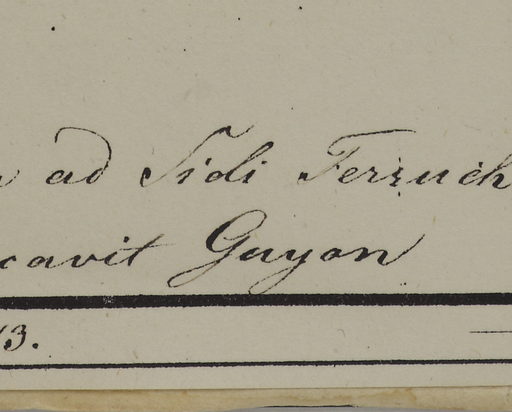 ad Sidi Ferruch
cavit Guyon
3.